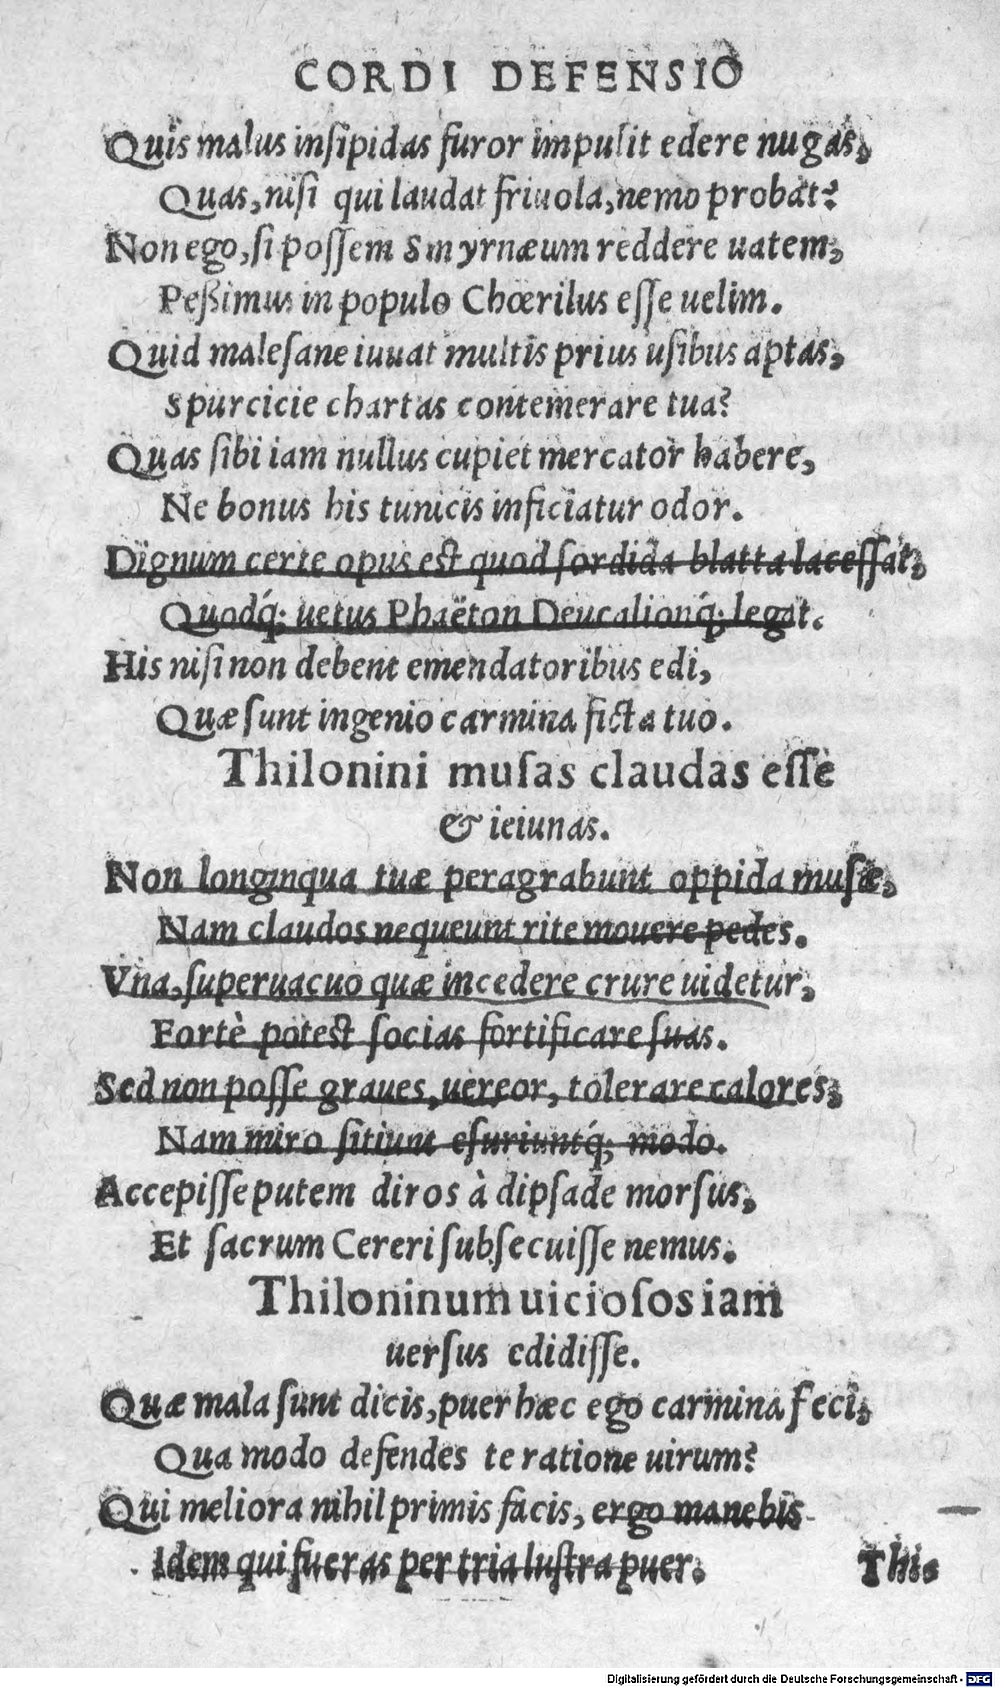 CORDI DEFENSIO
Quis malus insipidas furor impulit edere nugas,
Quas, nisi qui laudat friuola, nemo probat?
Non ego, si possem Smyrnæum reddere uatem,
Peßimus in populo Chœrilus esse uelim.
Quid malesane iuuat multis prius usibus aptas,
Spurcicie chartas contemerare tua?
Quas sibi iam nullus cupiet mercator habere,
Ne bonus his tunicis inficiatur odor.
Dignum certe opus est quod sordida blatta lacessat,
Quodq́; uetus Phaëton Deucalionq́; legat.
His nisi non debent emendatoribus edi,
Quæ sunt ingenio carmina ficta tuo.
Thilonini musas claudas esse
& ieiunas.
Non longinqua tuæ peragrabunt oppida musæ,
Nam claudos nequeunt rite mouere pedes.
Vna, superuacuo quæ incedere crure uidetur,
Fortè potest socias fortificare suas.
Sed non posse graues, uereor, tolerare calores,
Nam miro sitiunt esuriuntq́; modo.
Accepisse putem diros à dipsade morsus,
Et sacrum Cereri subsecuisse nemus.
Thiloninum uiciosos iam
uersus edidisse.
Quæ mala sunt dicis, puer hæc ego carmina feci,
Qua modo defendes te ratione uirum?
Qui meliora nihil primis facis, ergo manebis
Idem qui fueras per tria lustra puer.
This
Digitalisierung gefördert durch die Deutsche Forschungsgemeinschaft - DFG